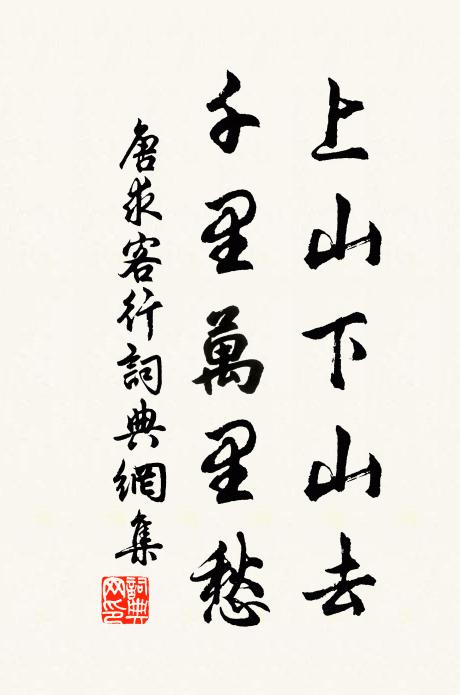 上山下山去
千里萬里愁
唐求客行詞典網集
詞典
網印